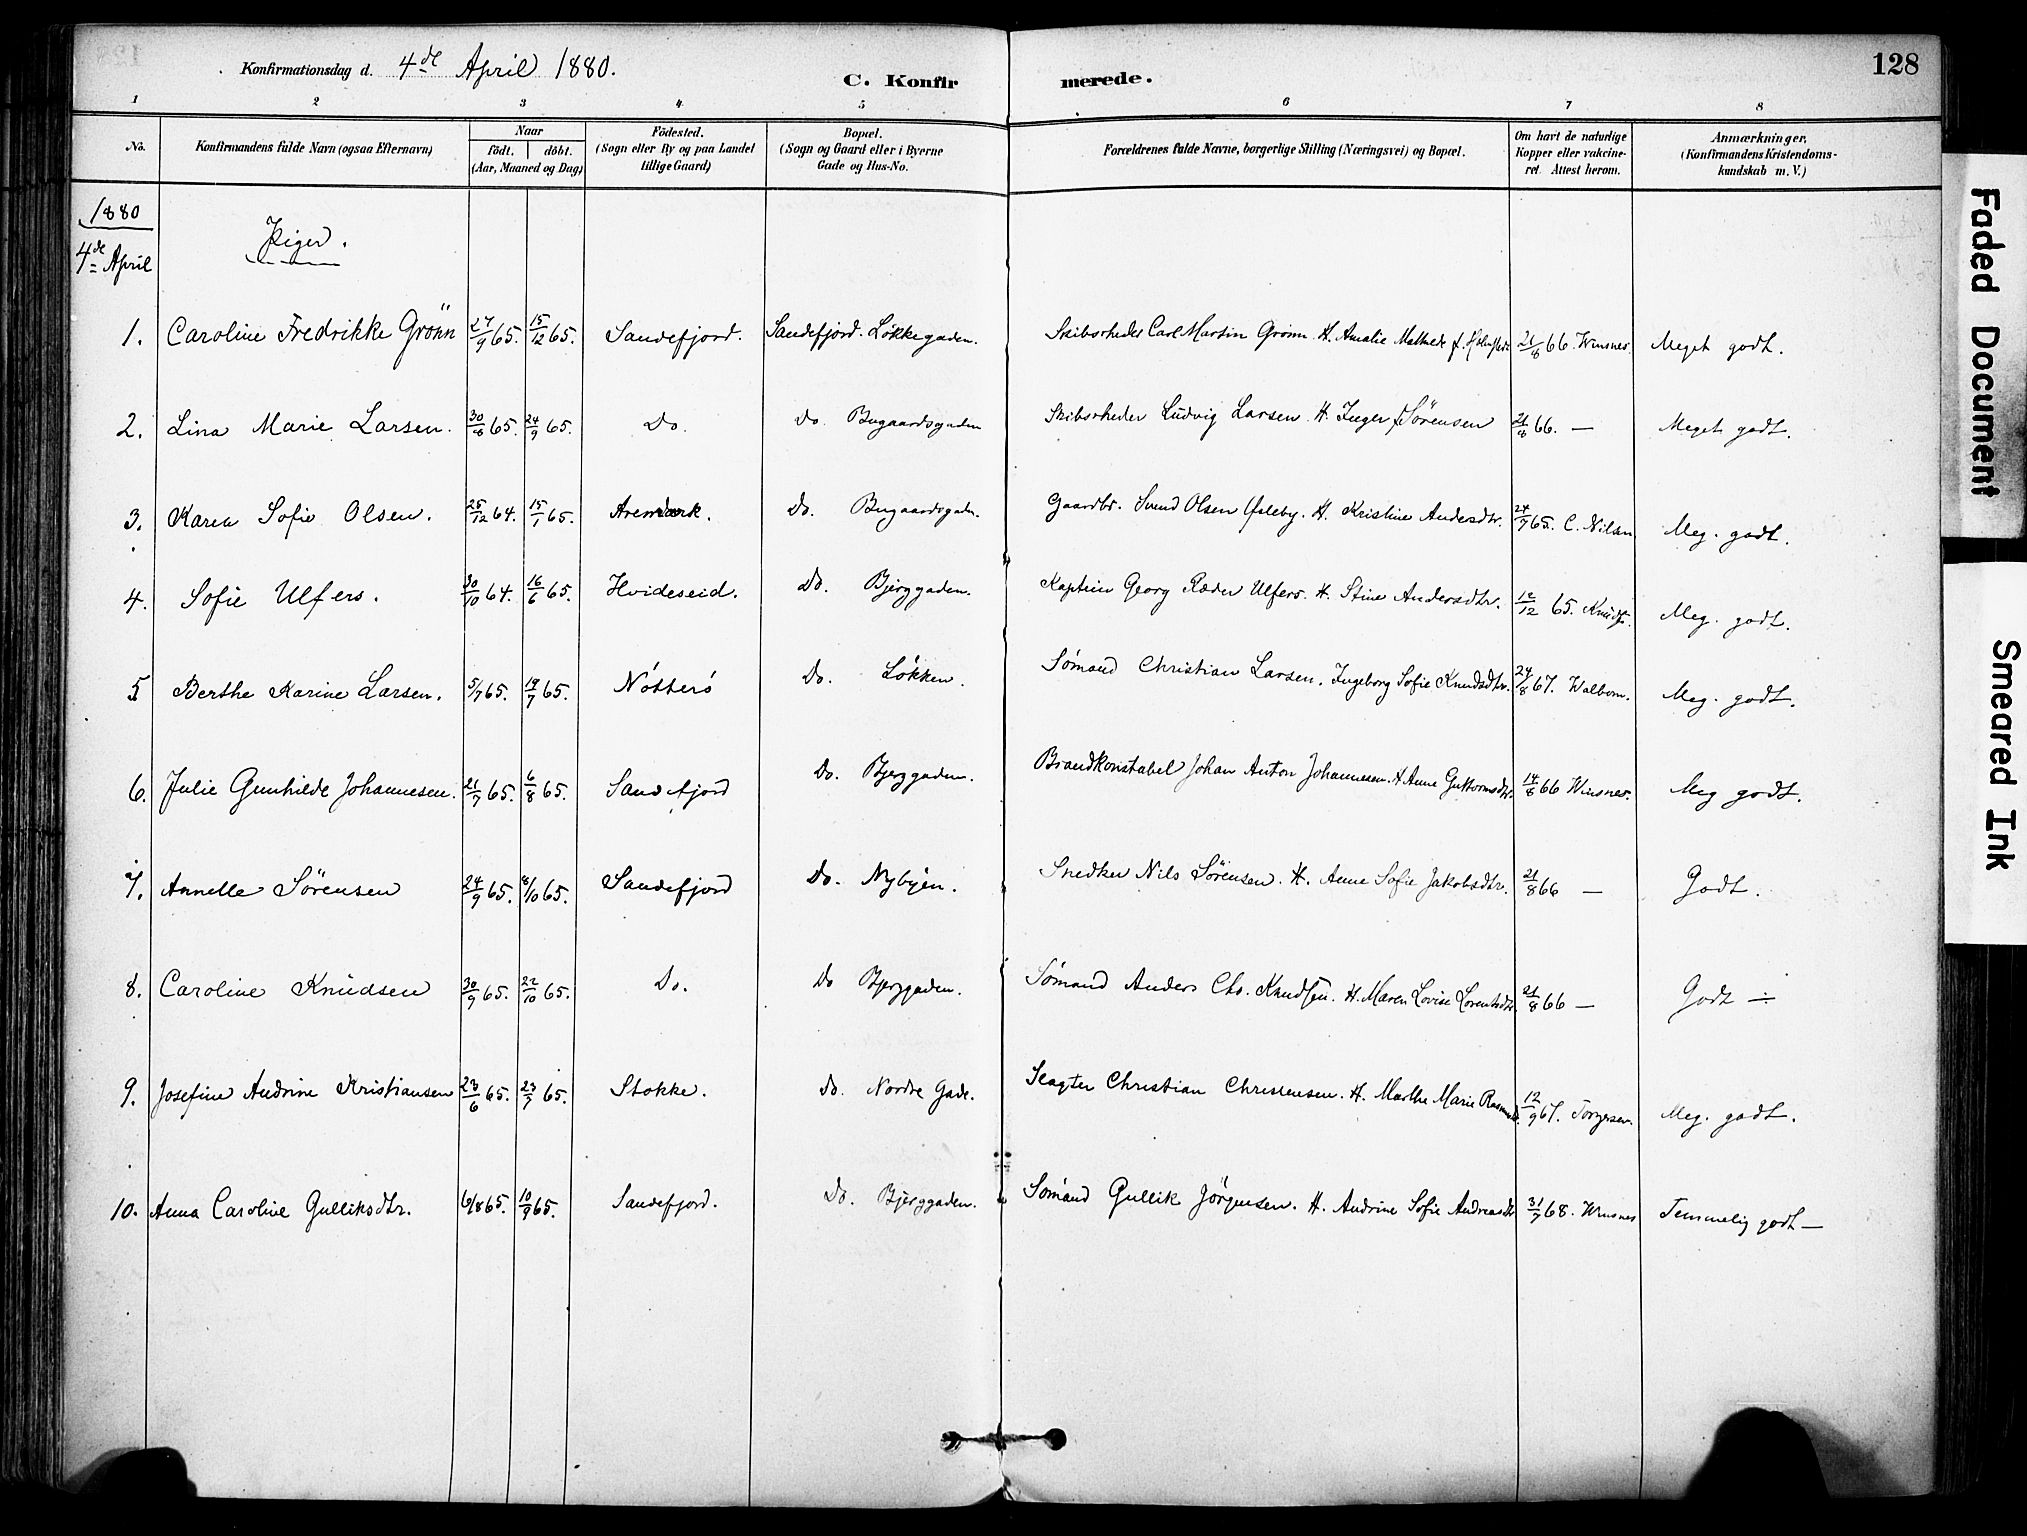 128
Konfirmationsdag d. 4de April 1880.
C. Konfirmerede.
1 2 3 4 5 6 7 8
No. | Konfirmandens fulde Navn (ogsaa Efternavn) | Naar födt. | döbt. (Aar, Maaned og Dag) | Födested. (Sogn eller By og paa Landet tillige Gaard) | Bopæl. (Sogn og Gaard eller i Byerne Gade og Hus-No. | Forældrenes fulde Navne, borgerlige Stilling (Næringsvei) og Bopæl. | Om havt de naturlige Kopper eller vakcineret. Attest herom. | Anmærkninger. (Konfirmandens Kristendomskundskab m. V.)
1880
4de April
Piger.
1. Caroline Fredrikke Grönn 27/9 65. 15/12 65. Sandefjord. Sandefjord. Løkkegaden. Skibsrheder Carl Martin Grönn H. Amalie Mathede f. 21/8 66. Winsnes. Meget godt.
2. Lina Marie Larsen. 30/8 65. 24/9 65. Do. Do. Bugaardsgaden Skibsrheder Ludvig Larsen. H. Inger f. Sörensen 21/8 66. — Meget godt.
3. Karen Sofie Olsen. 25/12 64. 15/1 65. Aremark. Do. Bugaardsgaden. Gaardbr. Svend Olsen H. Kristine Andersdtr. 24/7 65. C. Nilsen Meg. godt.
4. Sofie Ulfers. 30/10 64. 16/6 65. Hvideseid. Do. Bjerggaden. Kaptein Georg Ræder Ulfers. H. Stine Andersdtr. 12/12 65. Meg. godt.
5 Berthe Karine Larsen. 5/7 65. 19/7 65. Nötterö Do. Løkken. Sømand Christian Larsen. Ingeborg Sofie Knudsdtr. 24/8 67. Walbom. Meg. godt.
6. Julie Gunhilde Johannesen. 21/7 65. 6/8 65. Sandefjord Do. Bjerggaden. Brandkonstabel Johan Anton Johannesen. H. Anne Guttormsdtr. 14/8 66 Winsnes. Meg godt.
7. Annette Sörensen 24/9 65. 8/10 65. Sandefjord Do. Nybyen. Snedker Nils Sörensen. H. Anne Sofie Jakobsdtr. 21/8 66 — Godt.
8. Caroline Knudsen 30/9 65. 22/10 65. Do. Do Bjerggaden. Sømand Anders Chr. Knudsen. H. Maren Lovise Lorentsdtr. 21/8 66 — Godt ÷
9. Josefine Andrine Kristiansen 23/6 65. 23/7 65. Stokke. Do. Nordre Gade. Slagter Christian Christensen. H. Marthe Marie 12/9 67. Torgersen. Meg. godt.
10. Anna Caroline Gulliksdtr. 6/8 65. 10/9 65. Sandefjord. Do. Bjerggaden. Sømand Gullik Jørgensen. H. Andrine Sofie Andreasdtr 31/7 68. Winsnes Temmelig godt —
Faded Document
Smeared Ink